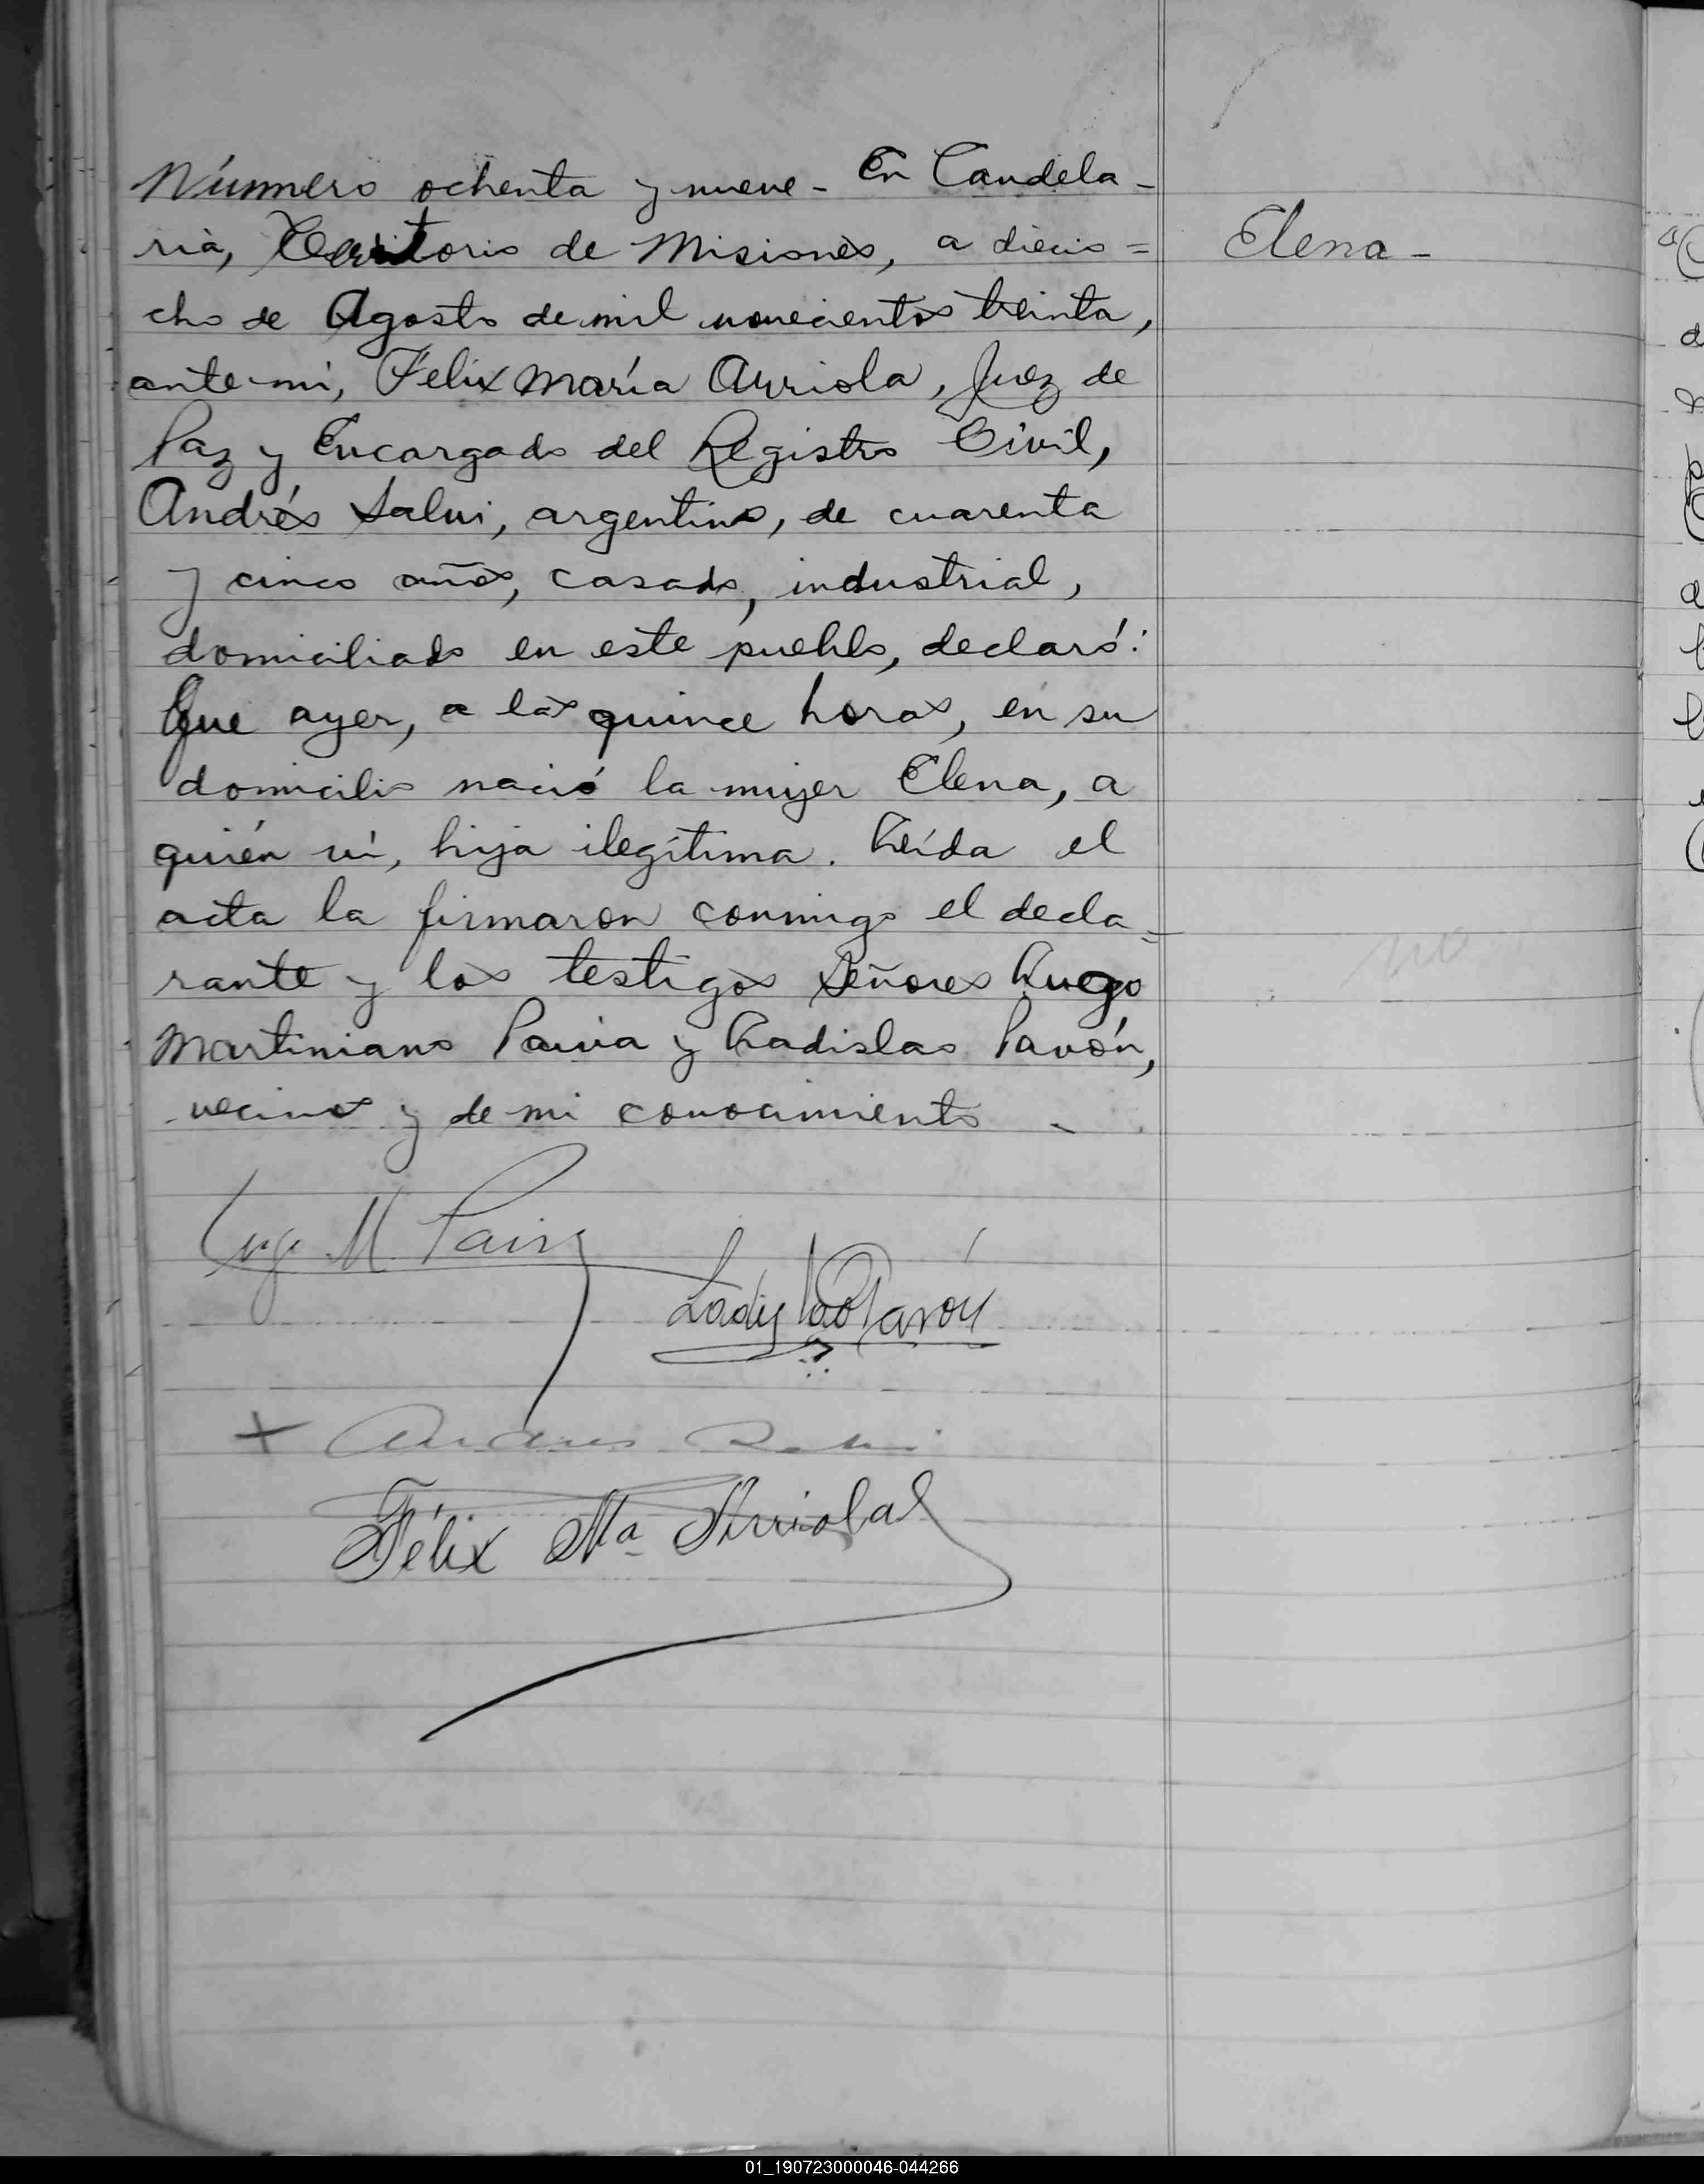 Número ochenta y nueve - En Candela -
ria, Territorio de Misiones, a diecio =
cho de Agosto de mil novecientos treinta,
ante mí, Felix María Arriola, Juez de
Paz y Encargado del Registro Civil,
Andrés Salvi, argentino, de cuarenta
y cinco años, casado, industrial,
domiciliado en este pueblo, declaró:
Que ayer, a las quince horas, en su
domicilio nació la mujer Elena, a
quién ví, hija ilegítima. Leída el
acta la firmaron conmigo el decla =
rante y los testigos Señores Lugo
Martiniano Paiva y Ladislao Pavón,
vecinos y de mi conocimiento -
Elena -
no
Lugo M. Paiva
Ladislao Pavón
+ Andres Salvi
Félix Ma Arriola
01_190723000046-044266